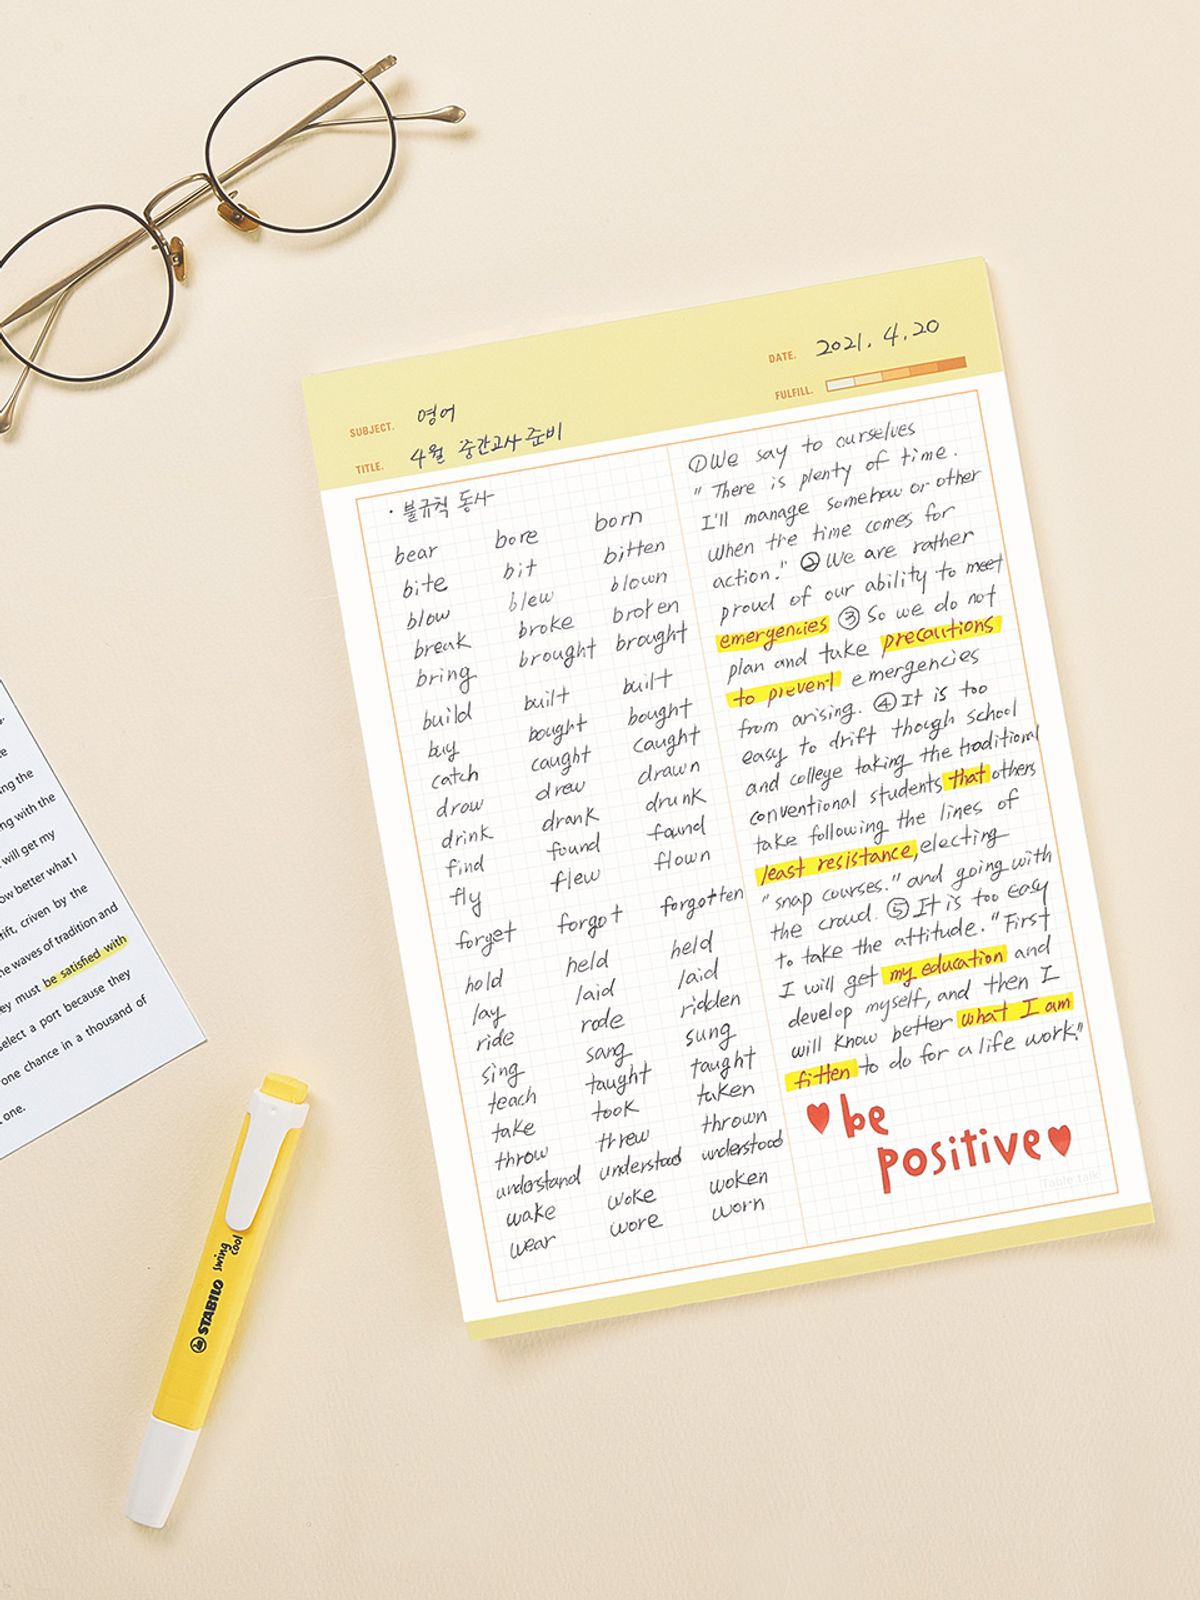 SUBJECT. 영어
DATE. 2021. 4. 20
TITLE. 4월 중간고사 준비
FULFILL.
· 불규칙 동사
bear bore born
bite bit bitten
blow blew blown
break broke broken
bring brought brought
build built built
buy bought bought
catch caught caught
draw drew drawn
drink drank drunk
find found found
fly flew flown
forget forgot forgotten
hold held held
lay laid laid
ride rode ridden
sing sang sung
teach taught taught
take took taken
throw threw thrown
understand understood understood
wake woke woken
wear wore worn
①We say to ourselves
"There is plenty of time.
I'll manage somehow or other
when the time comes for
action." ②We are rather
proud of our ability to meet
emergencies ③So we do not
plan and take precautions
to prevent emergencies
from arising. ④It is too
easy to drift though school
and college taking the traditional
conventional students that others
take following the lines of
least resistance, electing
"snap courses." and going with
the croud. ⑤It is too easy
to take the attitude. "First
I will get my education and
develop myself, and then I
will know better what I am
fitten to do for a life work."
be
positive
Table talk
ng the
ng with the
will get my
ow better what I
rift, criven by the
he waves of tradition and
ey must be satisfied with
select a port because they
one chance in a thousand of
one.
STABILO swing cool